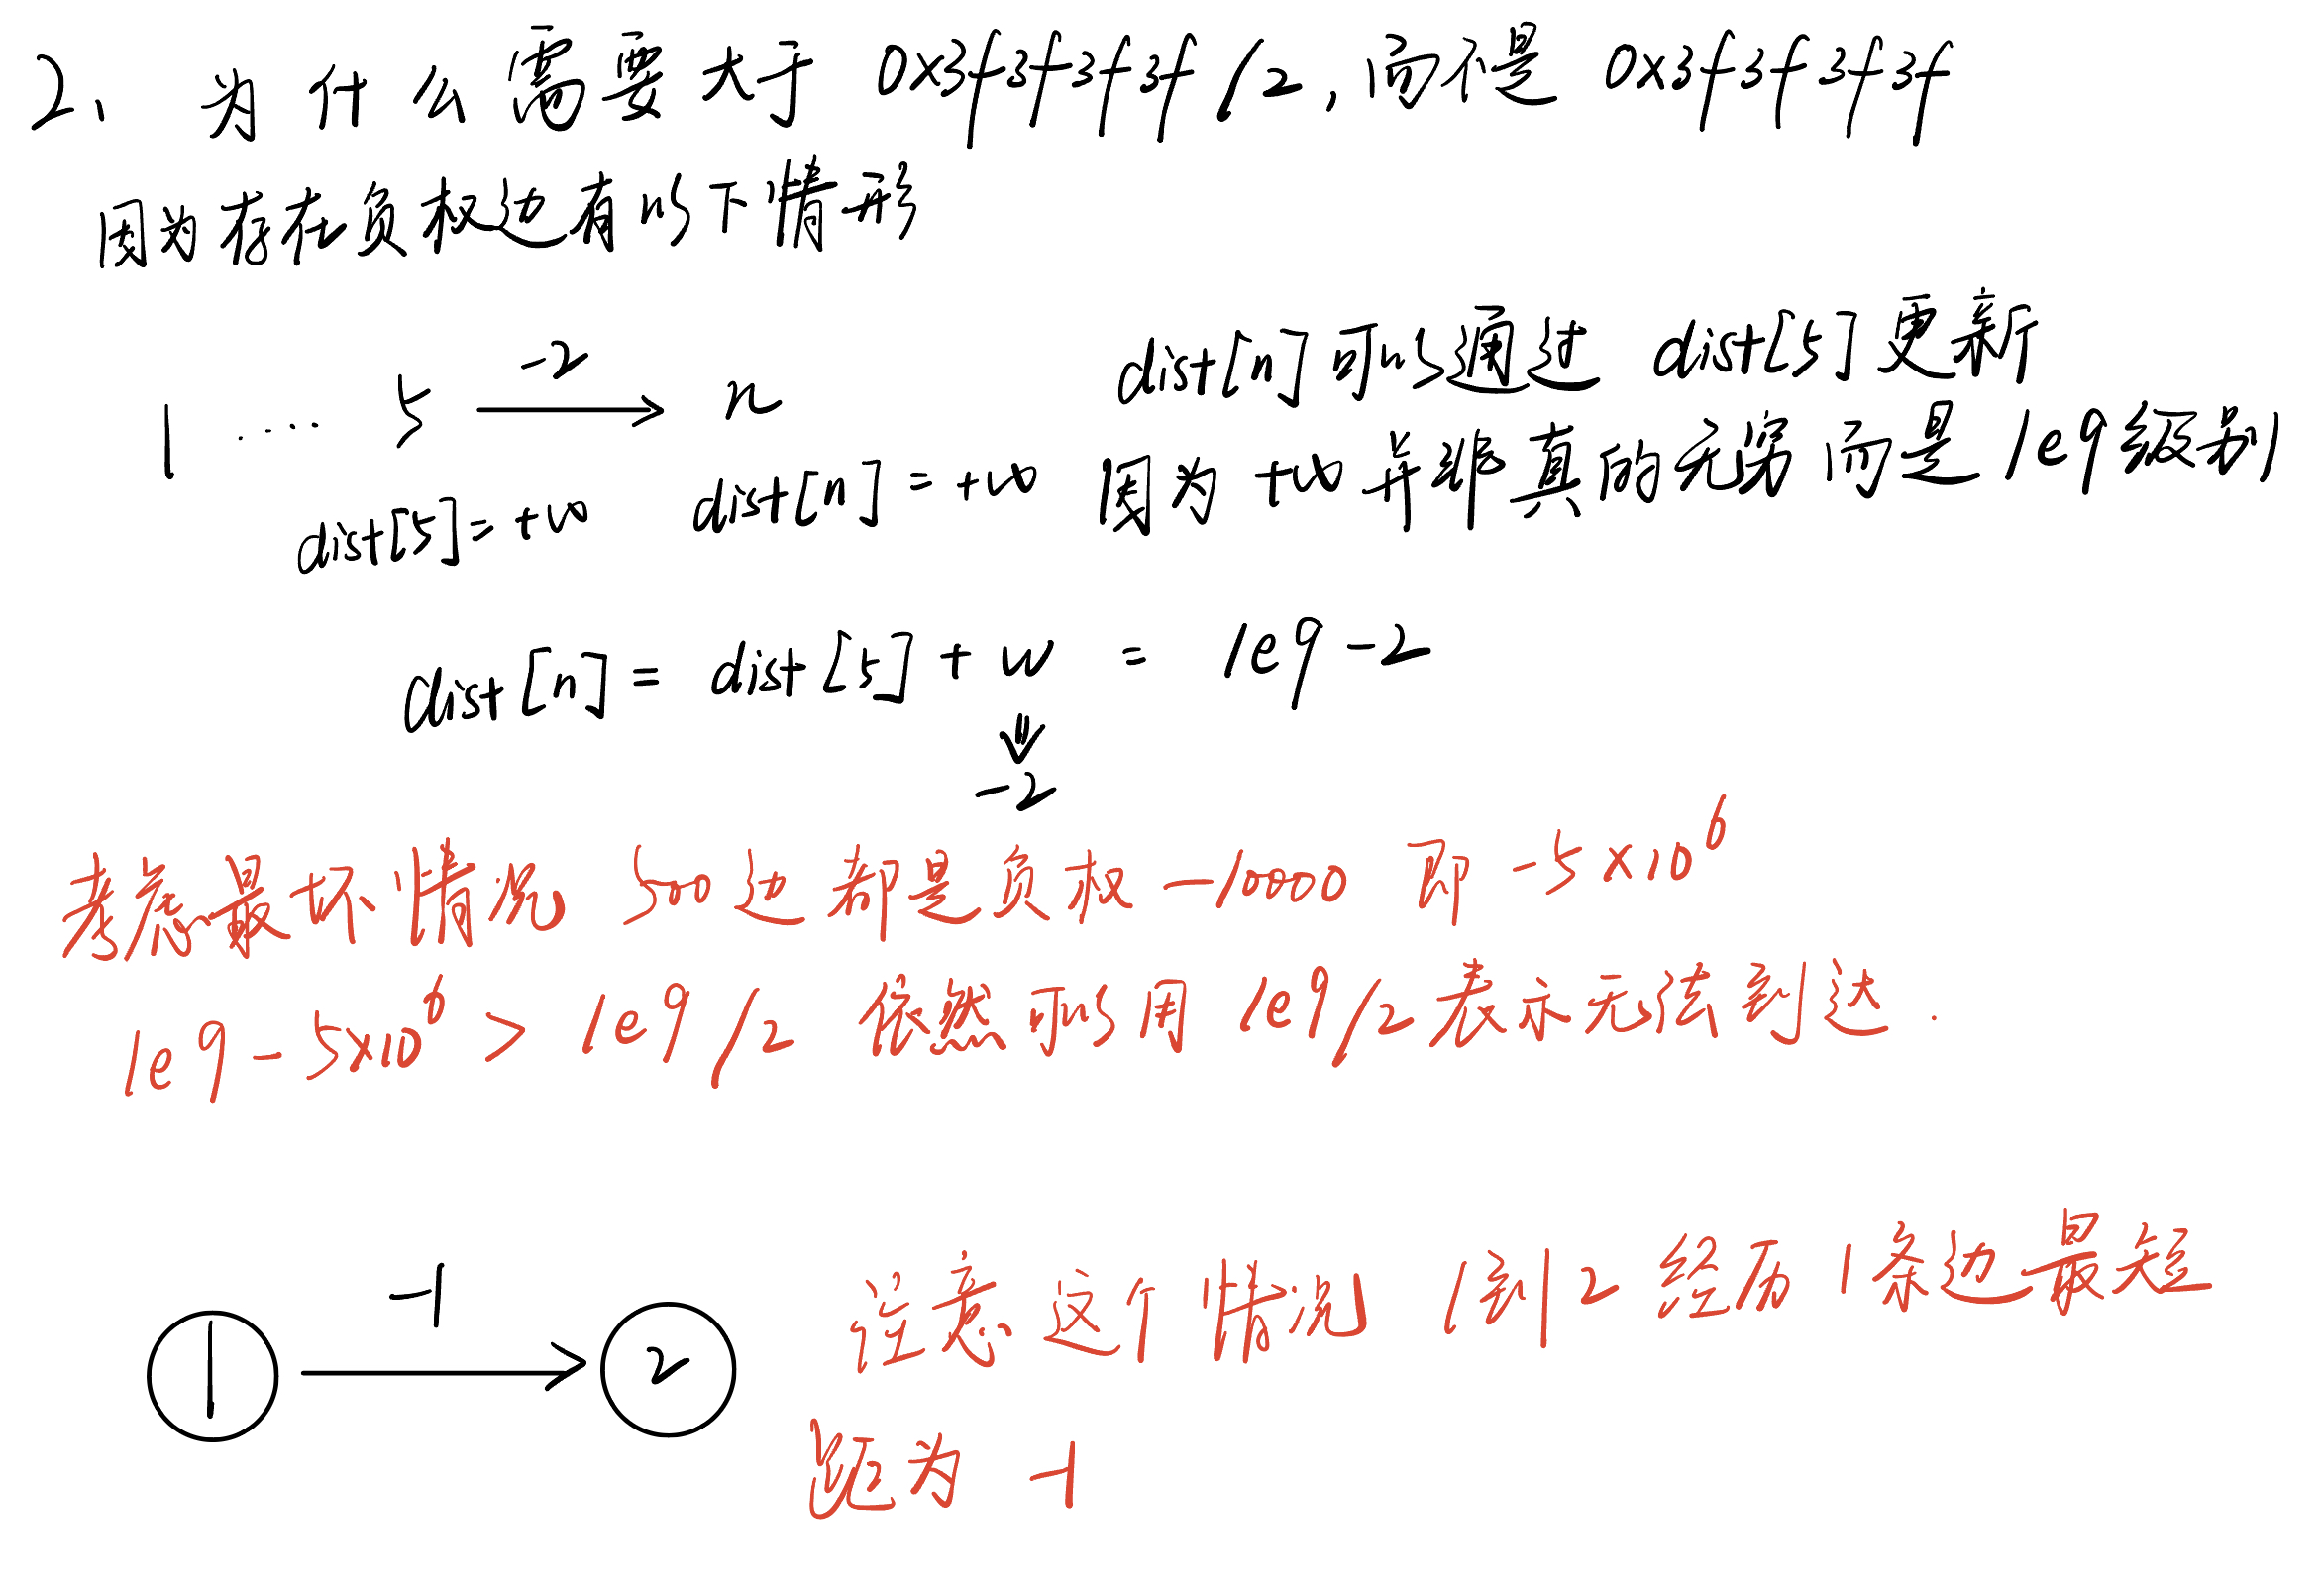 2、为什么需要大于 0x3f3f3f3f/2,而不是 0x3f3f3f3f
因为存在负权边有以下情形
-2
1 .... 5 → n
dist[5]=+∞ dist[n]=+∞
dist[n]可以通过 dist[5]更新
因为 +∞ 并非真的无穷而是 1e9级别
dist[n] = dist[5] + w = 1e9 -2
⇓
-2
考虑最坏情况 500边都是负权 -10000 即 -5×10⁶
1e9-5×10⁶ > 1e9/2 依然可以用 1e9/2 表示无法到达.
-1
1 → 2
注意这个情况 1到2 经历1条边最短
距为 -1